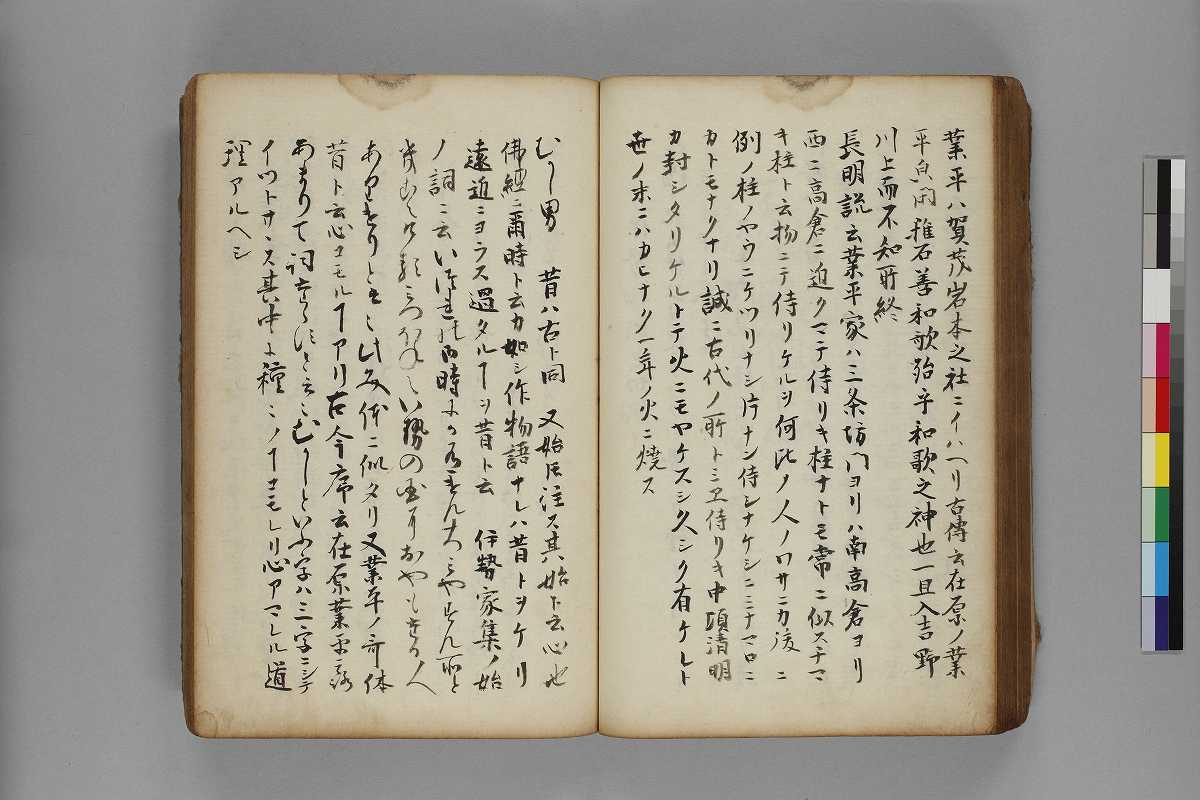 業平ハ賀茂岩本之社ニイハヘリ古傳云在原ノ業
平自閑雅石善和歌殆乎和歌之神也一旦入吉野
川上而不知所終
長明説云業平家ハ三条坊門ヨリハ南高倉ヨリ
西ニ高倉ニ近クマテ侍リキ柱ナトモ常ニ似スチマ
キ柱ト云物ニテ侍リケルヲ何比ノ人ノワサニカ後ニ
例ノ柱ノヤウニケツリナシ片ナン侍シナケシニミナマロニ
カトモナクナリ誠ニ古代ノ所トミヱ侍リキ中頃清明
カ封シタリケルトテ火ニモヤケスシ久シク有ケレト
世ノ末ニハカヒナク一年ノ火ニ焼ス
むかし男 昔ハ古ト同 又始臣注ス其始ト云心也
佛經ニ爾時ト云カ如シ作物語ナレハ昔トヲケリ
遠近ニヨラス過タルヿヲ昔ト云 伊勢家集ノ始
ノ詞ニ云いつれの御時にかありけん大みやすん所と
い勢の国にかおやもある人
ありけりと云々此文体ニ似タリ又業平ノ哥体
昔ト云心コモルヿアリ古今序云在原業平ハ
あまりて詞たらすと云々むかしといふ字ハ三字ニシテ
イツトサヽス其中ニ種々ノヿコモレリ心アマレル道
理アルヘシ